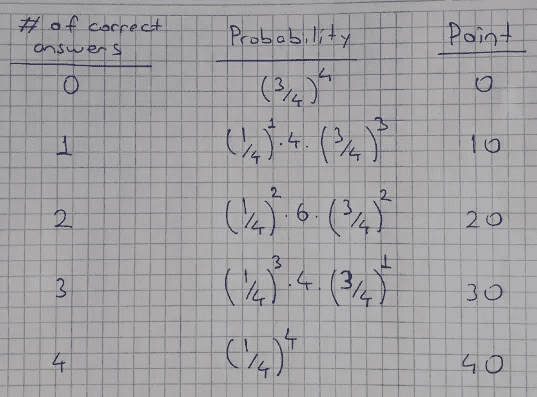 # of correct answers Probability Point
0 (3/4)^4 0
1 (1/4)^1 · 4 · (3/4)^3 10
2 (1/4)^2 · 6 · (3/4)^2 20
3 (1/4)^3 · 4 · (3/4)^1 30
4 (1/4)^4 40